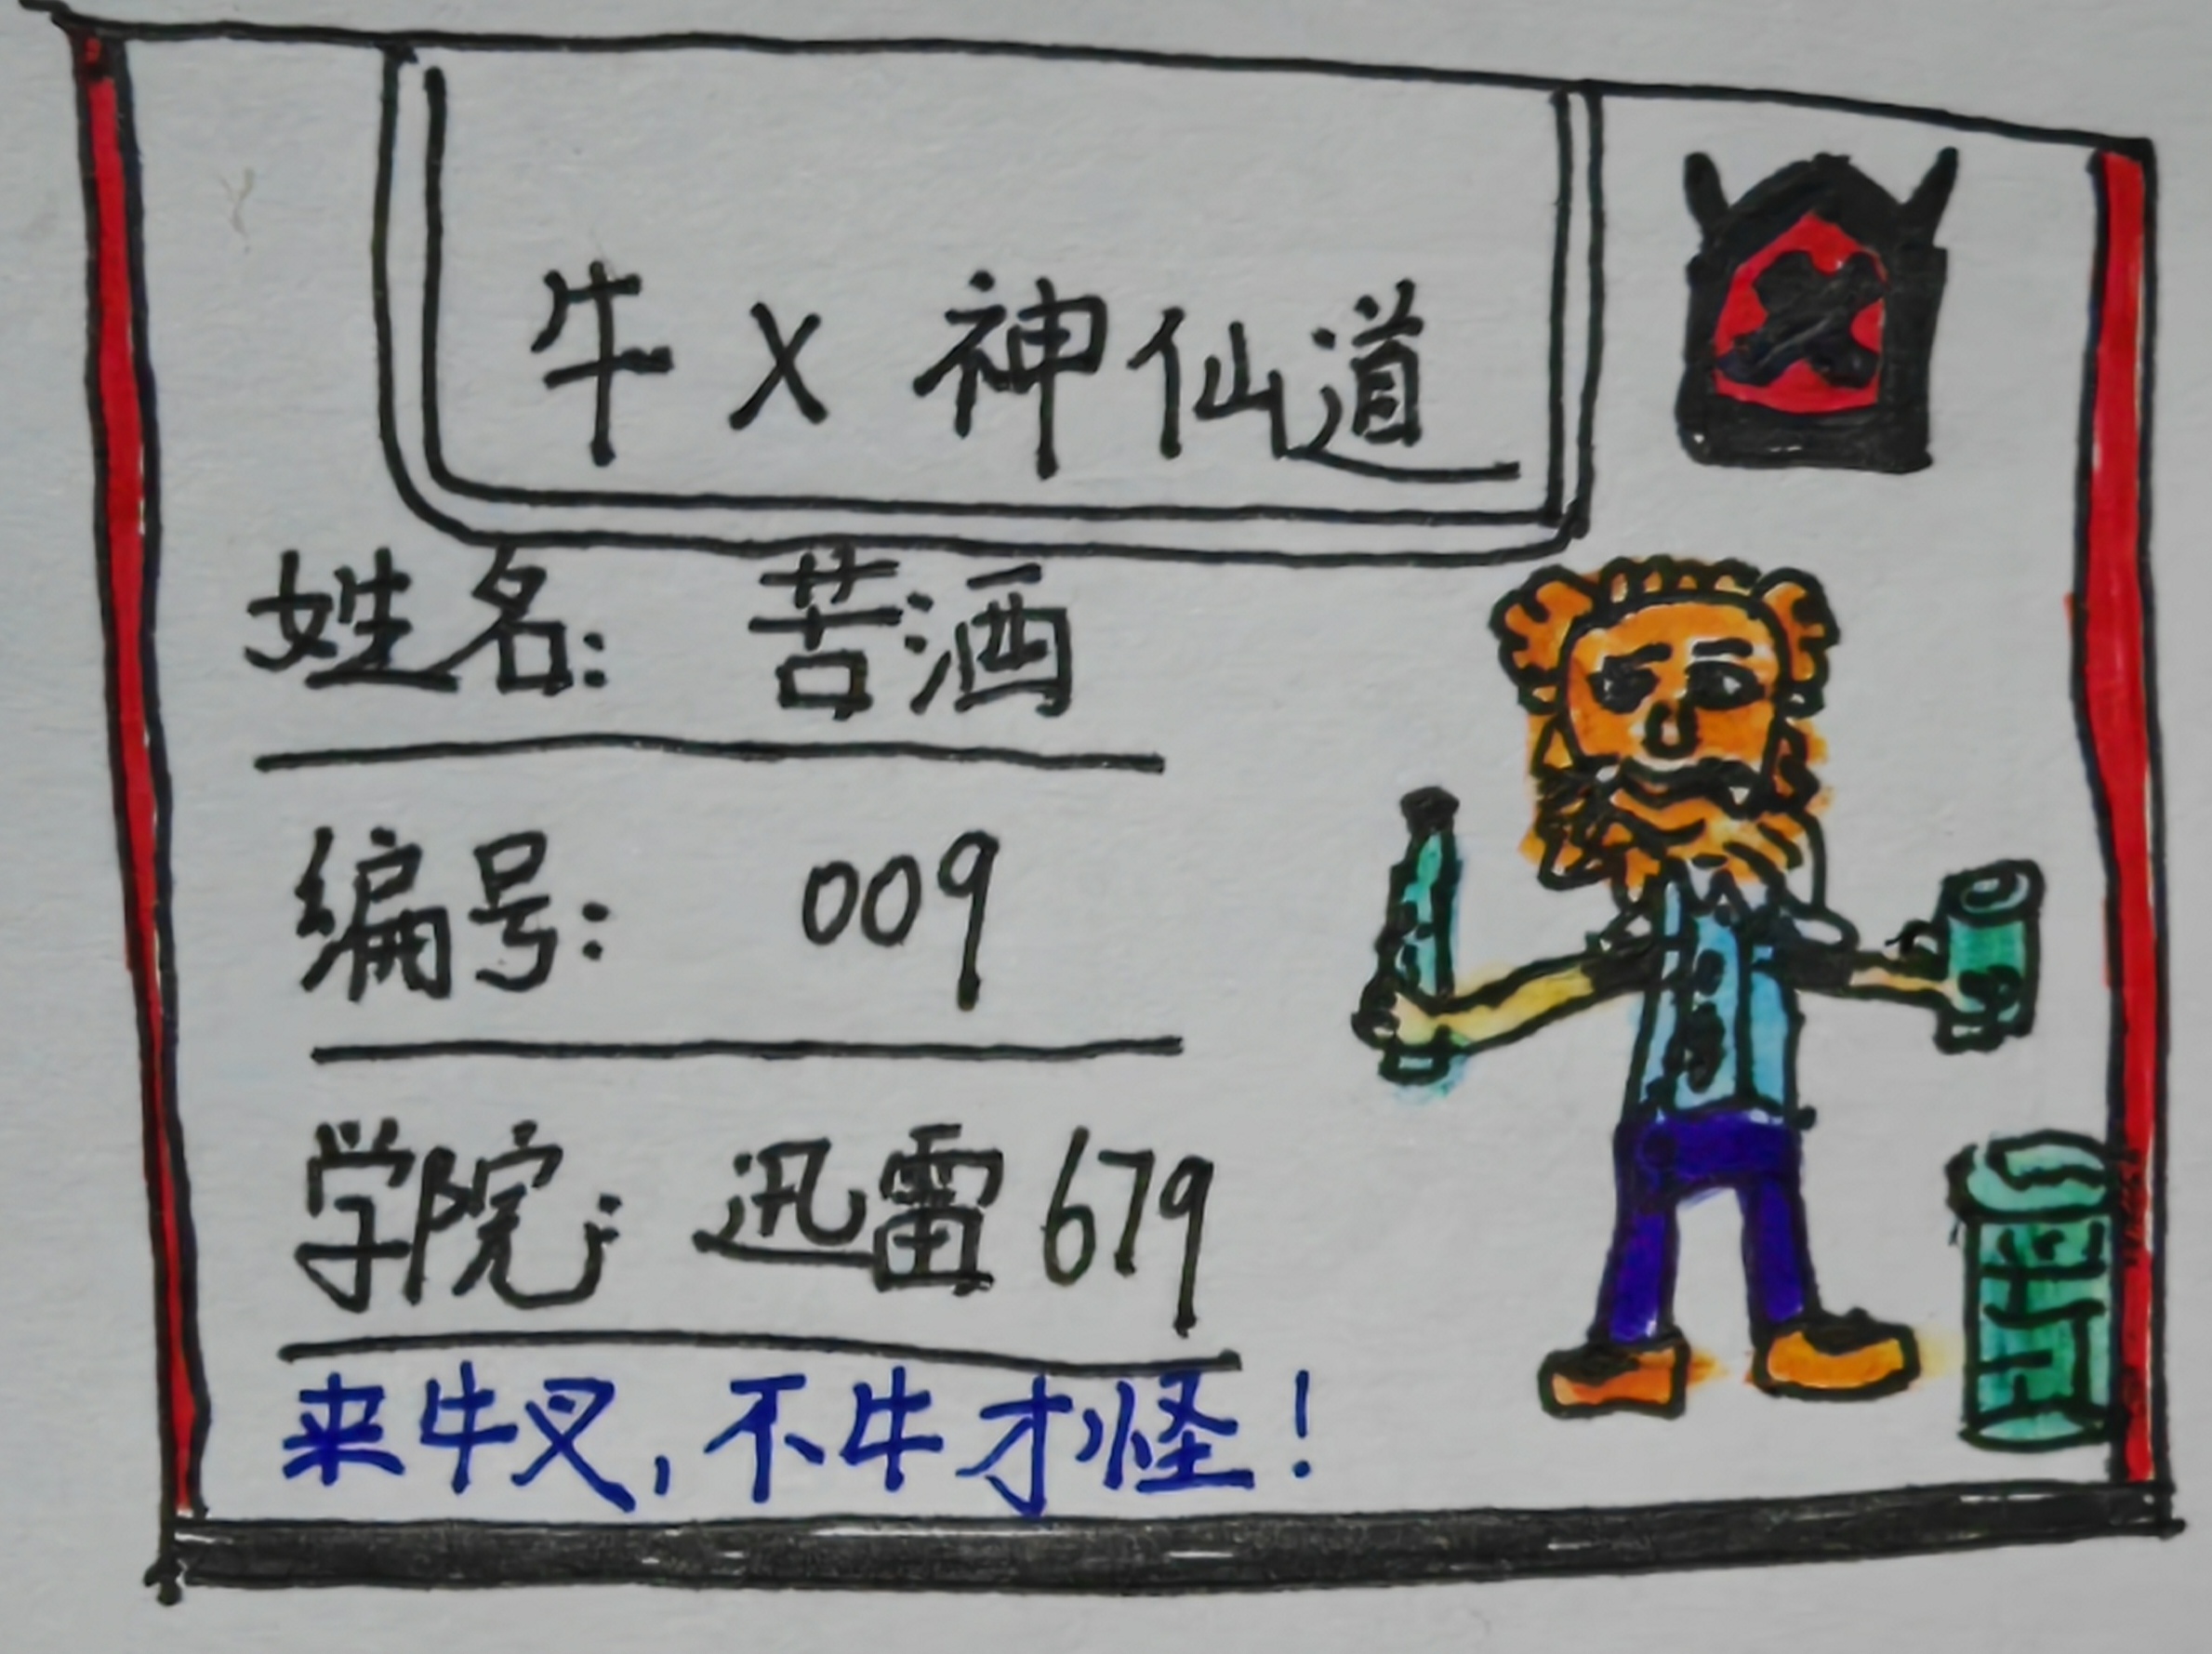 牛X神仙道
姓名: 苦洒
编号: 009
学院: 迅雷679
来牛叉,不牛才怪!